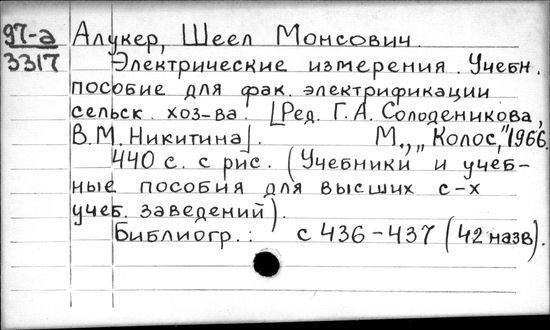 97-а Алукер, Шеел Монсович
3317 Электрические измерения. Учебн.
пособие для фак. электрификации
сельск. хоз-ва. [Ред. Г.А. Солоденикова,
В.М. Никитина]. М., „Колос," 1966.
440 с. с рис. (Учебники и учеб-
ные пособия для высших с-х
учеб. заведений).
Библиогр.: с 436-437 (42 назв).